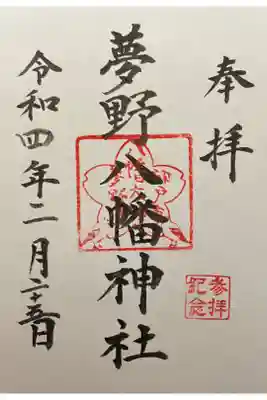 奉拝
夢野八幡神社
参拝
記念
令和四年二月二十五日